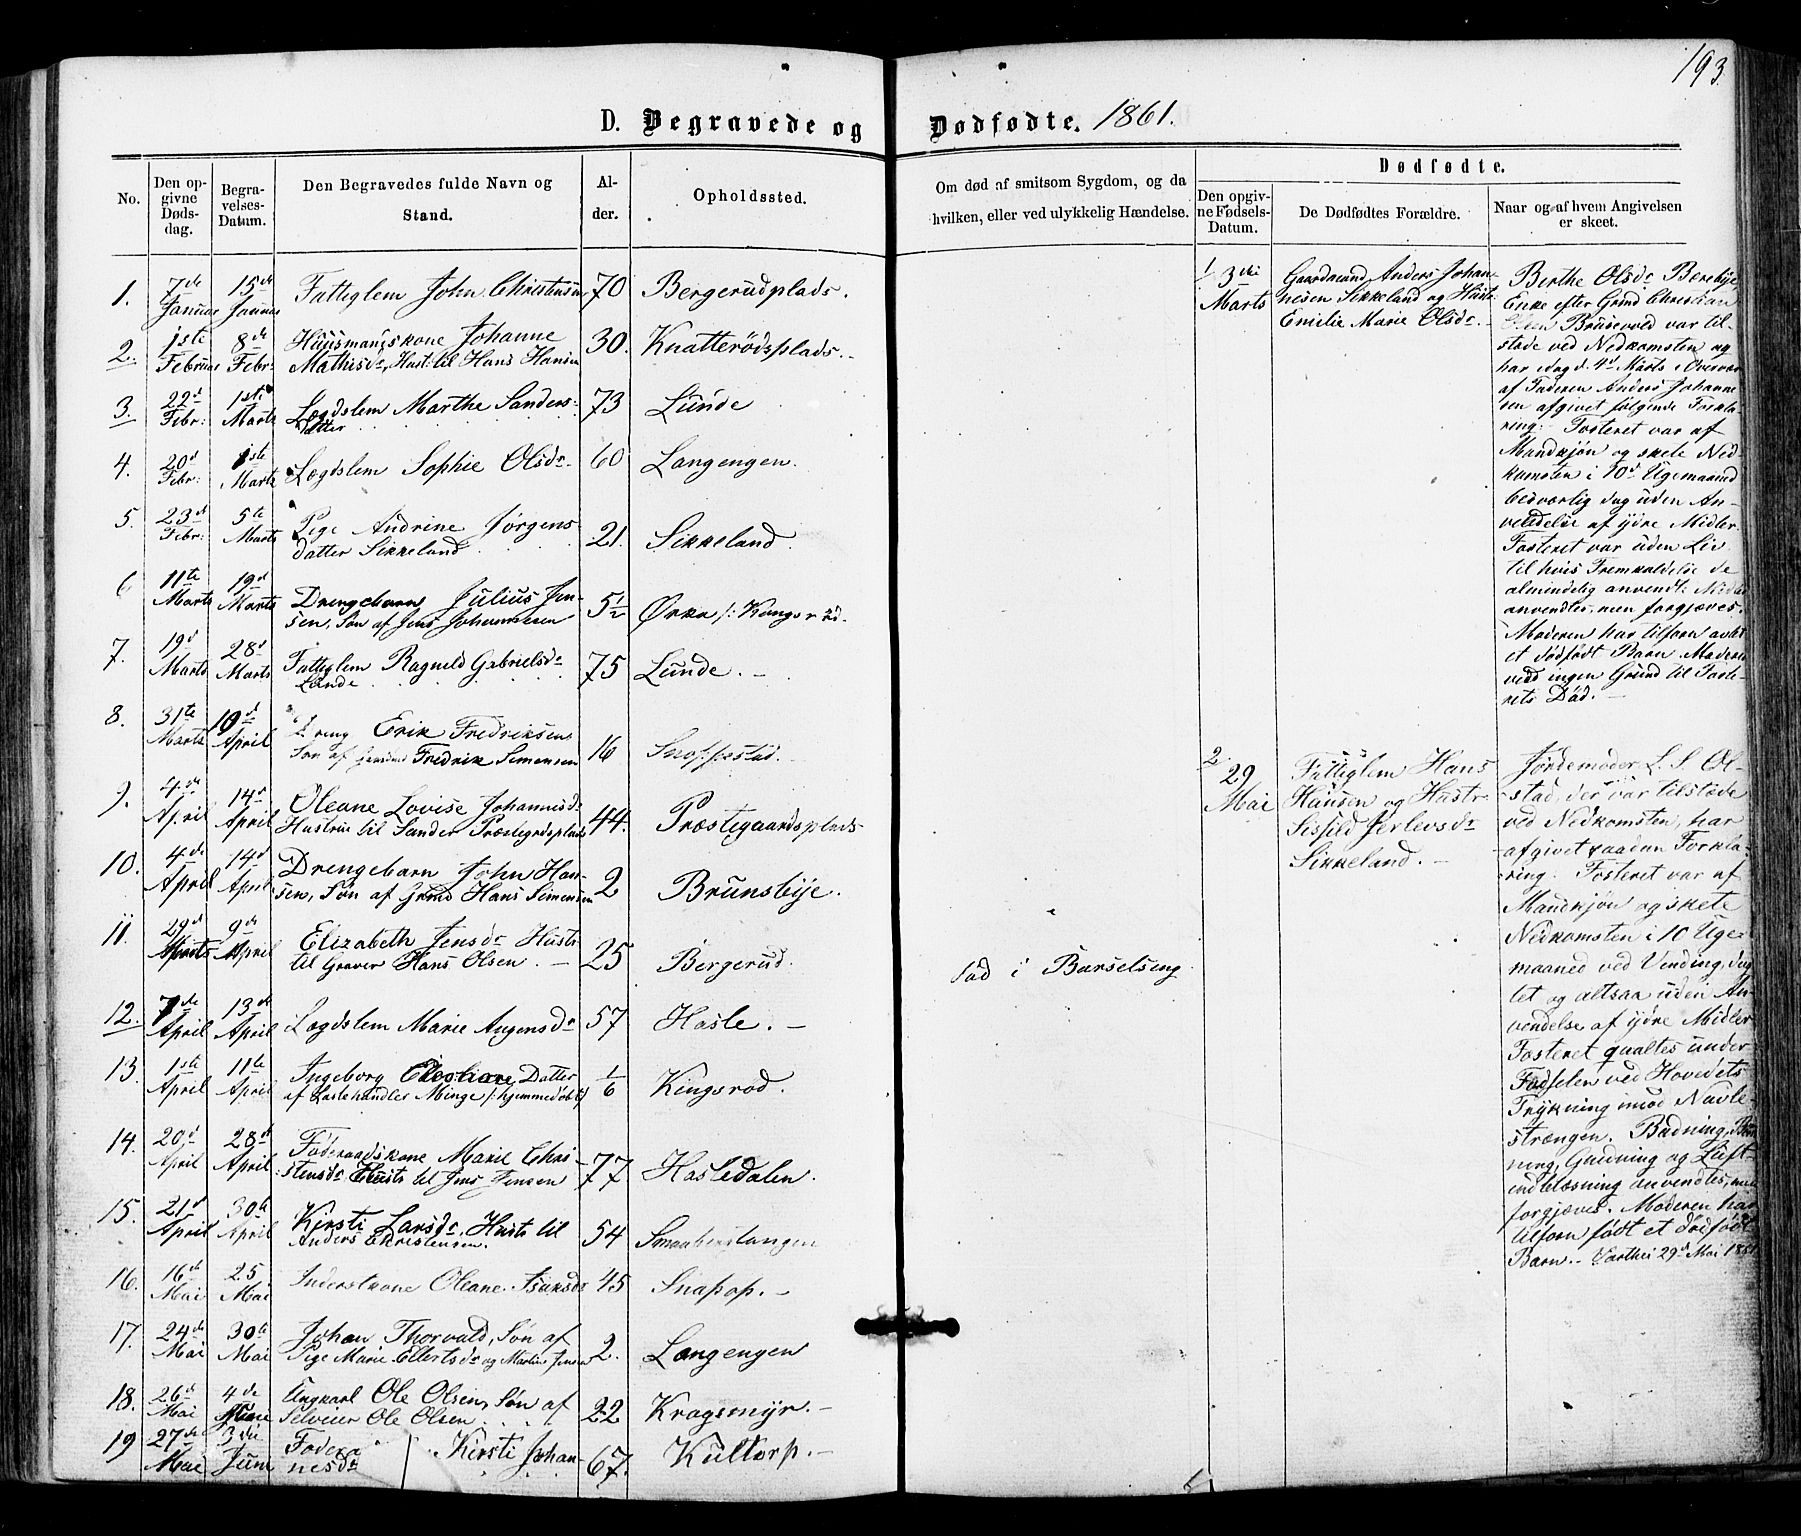 193
D. Begravede og Dødfødte. 1861.
No.
Den opgivne Dødsdag.
Begravelses-Datum.
Den Begravedes fulde Navn og Stand.
Alder.
Opholdssted.
Om død af smitsom Sygdom, og da hvilken, eller ved ulykkelig Hændelse.
Dødfødte.
Den opgivne Fødsels-Datum.
De Dødfødtes Forældre.
Naar og af hvem Angivelsen er skeet.
1. 7de Januar 15de Januar Fattiglem John Christensen 70 Bergerudplads.
2. 1ste Februar 8de Febr: Huusmandskone Johanne
Mathisdr, Hust: til Hans Hansen 30. Knatterødsplads.
3. 22d Febr: 1ste Marts Lægdslem Marthe Sanders-
datter 73 Lunde
4. 20d Febr: 1ste Marts Lægdslem Sophie Olsdr. 60 Langengen.
5. 23d Febr: 5te Marts Pige Andrine Jørgens
datter Sikkeland 21. Sikkeland.
6 11te Marts 19d Marts Drengebarn Julius Jen-
sen, Søn af Jens Johannesen 5½ Ørke /: Kongsrød.
7. 19d Marts 28d Marts Fattiglem Ragnild Gabrielsdr
Lunde 75 Lunde.
8. 31te Marts 10d April Dreng Erik Fredriksen
Søn af Grmd Fredrik Simensen 16
9. 4de April 14d April Oleane Lovise Johannisdr
Hustru til Sander Præstegrdsplads 44. Præstegaardsplads
10. 4de April 14d April Drengebarn John Han-
sen, Søn af Grmd Hans Simensen 2 Brunsbye.
11. 29d Marts 9de April Elizabeth Jensdr Hustr
til Graver Hans Olsen. 25 Bergerud. død i Barselseng
12. 7de April 13d April Lægdslem Marie Aagensdr 57 Hasle.
13. 1ste April 11te April Ingeborg Datter
af Lastehandler Minge /: hjemmedøbt :/ 1/6 Kingsrod.
14. 20d April 28d April Føderaadskone Marie Chri-
stensdr Hustr til Jens Jensen 77 Hasledalen.
15. 21d April 30te April Kirsti Larsdr. Hustr til
Anders Christensen. 54 Smaabergtangen
16. 16d Mai 25 Mai Inderstkone Oleane Isaksdr 45 Snapop.
17. 24de Mai 30te Mai Johan Thorvald, Søn af
Pige Marie Ellertsdr og Martin Jensen 2. Langengen
18. 26d Mai 4de June Ungkarl Ole Olsen, Søn af
Selveier Ole Olsen 22 Kragsmyr.
19 27de Mai 3die June Federa Kirsti Johan-
nesdr 67. Kultorp.
1 3die Marts
Gaardmand Anders Johan-
nesen Sikkeland og Hustr
Emilie Marie Olsdr.
Berthe Olsdr Berebye,
Enke efter Grmd Christian
Olsen Brusevold var til-
stæde ved Nedkomsten og
har idag d. 4d Marts i Overvær
af Faderen Anders Johanne
sen afgivet følgende Forkla-
ring: Fosteret var af
Mandkjøn og skete Ned
komsten i 10d Ugemaaned
bedværlig dog uden An-
vendelse af ydre Midler
Fosteret var uden Liv
til hvis Fremkaldelse de
almindelig anvendt: Midler
anvendtes, men forgjæves.
Moderen har tilforn avlet
et dødfødt Barn. Moderen
vedd ingen Grund til Foste-
rets Død.
2. 29 Mai
Fattiglem Hans
Hansen og Hustr.
Sissild Jerlevsdr
Sikkeland.
Jordemoder L. S. Ol-
stad, der var tilstæde
ved Nedkomsten, har
afgivet saadan Forkla-
ring: Fosteret var af
Mandkjøn og skete
Nedkomsten i 10 Uge-
maaned ved Vending,
let og altsaa uden An-
vendelse af ydre Midler
Fosteret qualtes under
Fødselen ved Hovedets
Trykning imod Navle-
strængen. Badning,
ning, Gnidning og Luft-
indblæsning anvendtes, men
forgjæves. Moderen har
tilforn født et dødfødt
Barn. Varthei 29d Mai 1861